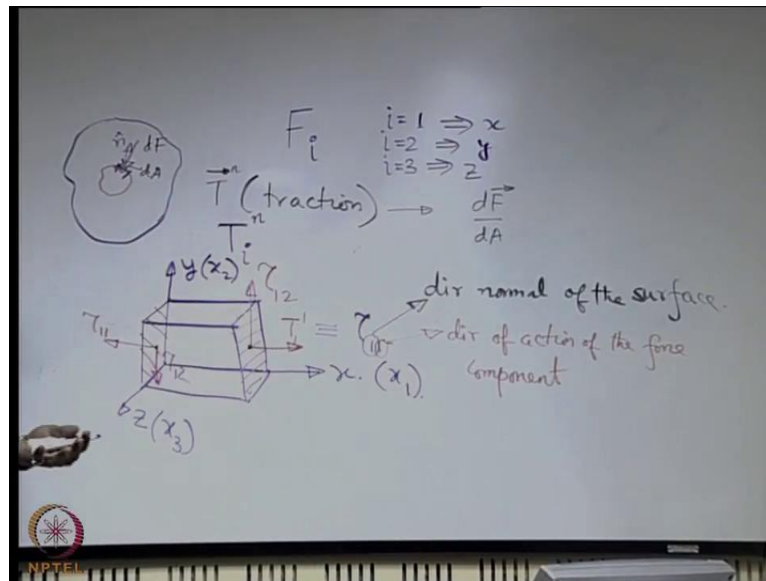 F_i
i=1 ⇒ x
i=2 ⇒ y
i=3 ⇒ z
n̂ dF
dA
T⃗^n (traction) → dF⃗/dA
T_i^n
y(x_2)
τ_12
τ_11
τ_12
T_1^1 ≡ τ_11
dir normal of the surface.
dir of action of the force
component
x. (x_1)
z(x_3)
NPTEL